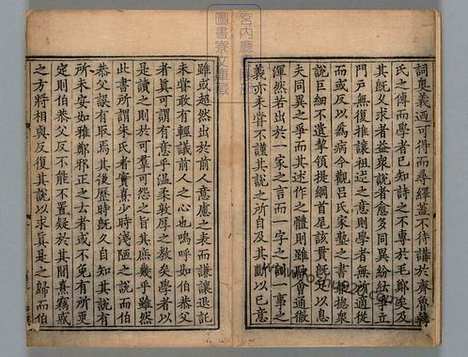 詞奧義廼可得而尋繹蓋不待講於齊魯韓
氏之傳而學者已知詩之不專於毛鄭矣及
其既久求者益衆說者愈多同異紛紜爭立
門戶無復推讓祖述之意則學者無所適從
而或反以為病今觀呂氏家塾之書兼緫衆
說巨細不遺挈領提綱首尾該貫既足以息
夫同異之爭而其述作之體則雖融會通徹
渾然若出於一家之言而一字之訓一事之
義亦未嘗不謹其說之所自及其斷以己意
雖或超然出於前人意慮之表而謙讓退託
未嘗敢有輕議前人之心也嗚呼如伯恭父
者真可謂有意乎温柔敦厚之教矣學者以
是讀之則於可羣可怨之旨其庶幾乎雖然
此書所謂朱氏者實熹少時淺陋之說而伯
恭父誤有取焉其後歷時既久自知其說有
所未安如雅鄭邪正之云者或不免有所更
定則伯恭父反不能不置疑於其間熹竊惑
之方將相與反復其說以求真是之歸而伯